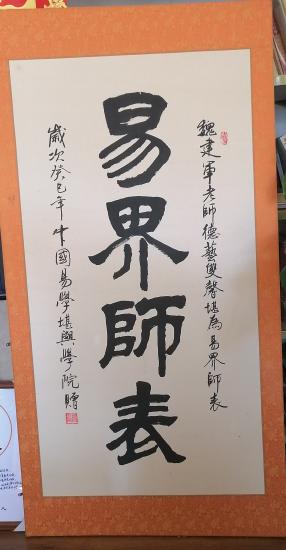 魏建軍老師德藝雙馨堪為易界師表
易界師表
歲次癸巳年中國易學堪輿學院贈